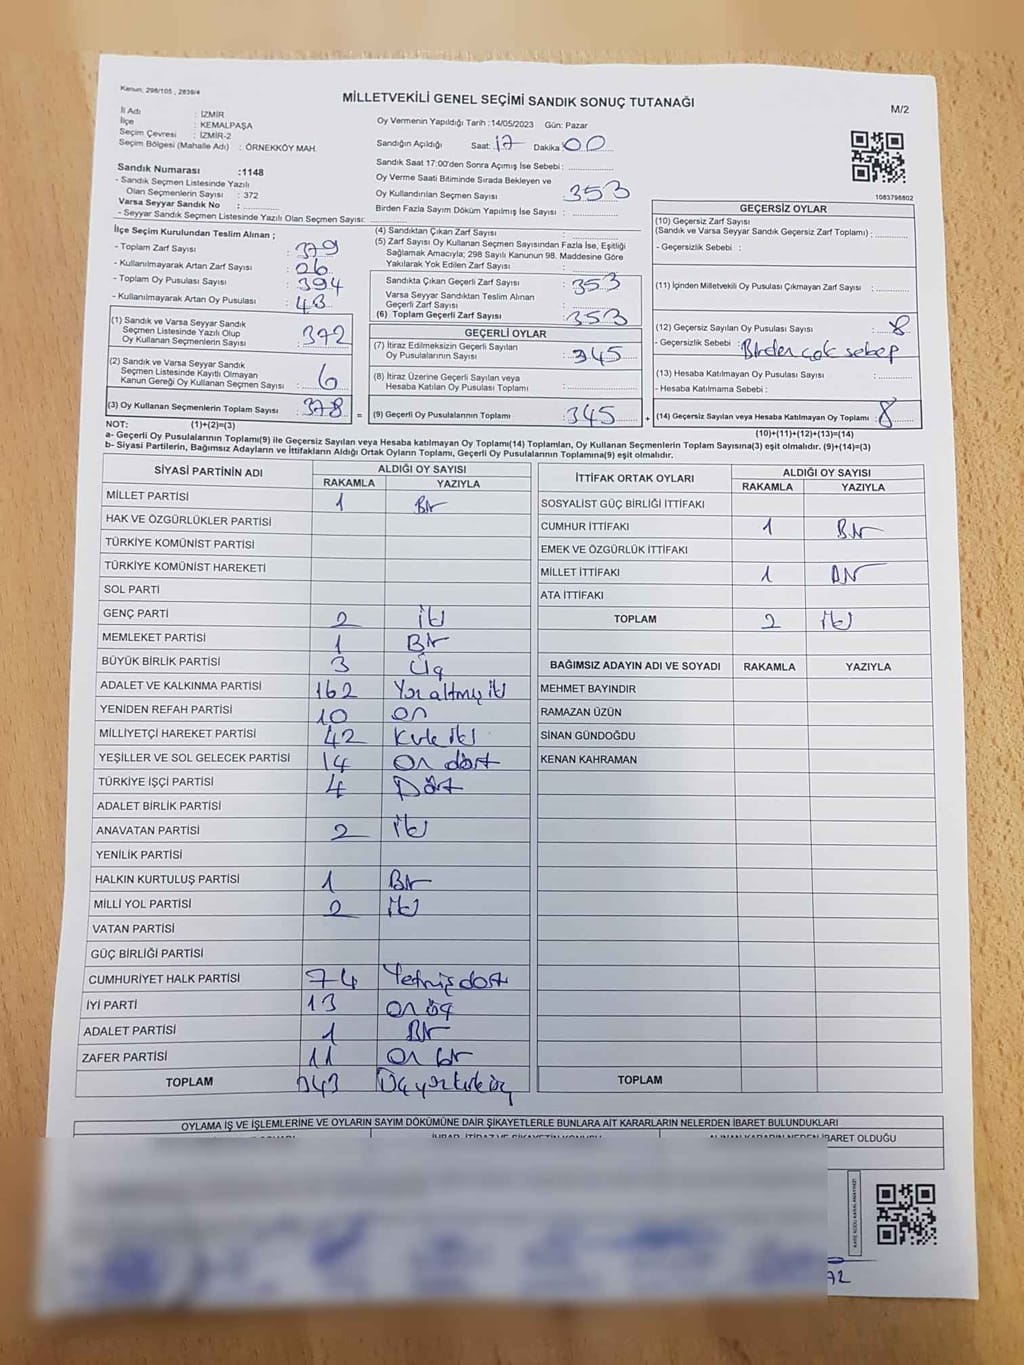 Kanun; 298/105 , 2839/4
MİLLETVEKİLİ GENEL SEÇİMİ SANDIK SONUÇ TUTANAĞI
M/2
İl Adı : İZMİR
İlçe : KEMALPAŞA
Seçim Çevresi : İZMİR-2
Seçim Bölgesi (Mahalle Adı) : ÖRNEKKÖY MAH.
Sandık Numarası :1148
- Sandık Seçmen Listesinde Yazılı
Olan Seçmenlerin Sayısı : 372
Varsa Seyyar Sandık No :
- Seyyar Sandık Seçmen Listesinde Yazılı Olan Seçmen Sayısı:
Oy Vermenin Yapıldığı Tarih :14/05/2023 Gün: Pazar
Sandığın Açıldığı Saat: 17 Dakika 00
Sandık Saat 17:00'den Sonra Açımış İse Sebebi :
Oy Verme Saati Bitiminde Sırada Bekleyen ve
Oy Kullandırılan Seçmen Sayısı : 353
Birden Fazla Sayım Döküm Yapılmış İse Sayısı :
1083798802
İlçe Seçim Kurulundan Teslim Alınan ;
- Toplam Zarf Sayısı : 379
- Kullanılmayarak Artan Zarf Sayısı : 26
- Toplam Oy Pusulası Sayısı : 394
- Kullanılmayarak Artan Oy Pusulası : 48
(1) Sandık ve Varsa Seyyar Sandık
Seçmen Listesinde Yazılı Olup
Oy Kullanan Seçmenlerin Sayısı : 372
(2) Sandık ve Varsa Seyyar Sandık
Seçmen Listesinde Kayıtlı Olmayan
Kanun Gereği Oy Kullanan Seçmen Sayısı : 6
(3) Oy Kullanan Seçmenlerin Toplam Sayısı : 378
(4) Sandıktan Çıkan Zarf Sayısı :
(5) Zarf Sayısı Oy Kullanan Seçmen Sayısından Fazla İse, Eşitliği
Sağlamak Amacıyla; 298 Sayılı Kanunun 98. Maddesine Göre
Yakılarak Yok Edilen Zarf Sayısı :
Sandıkta Çıkan Geçerli Zarf Sayısı : 353
Varsa Seyyar Sandıktan Teslim Alınan
Geçerli Zarf Sayısı :
(6) Toplam Geçerli Zarf Sayısı : 353
GEÇERLİ OYLAR
(7) İtiraz Edilmeksizin Geçerli Sayılan
Oy Pusulalarının Sayısı : 345
(8) İtiraz Üzerine Geçerli Sayılan veya
Hesaba Katılan Oy Pusulası Toplamı :
= (9) Geçerli Oy Pusulalarının Toplamı : 345 +
GEÇERSİZ OYLAR
(10) Geçersiz Zarf Sayısı
(Sandık ve Varsa Seyyar Sandık Geçersiz Zarf Toplamı) :
- Geçersizlik Sebebi :
(11) İçinden Milletvekili Oy Pusulası Çıkmayan Zarf Sayısı :
(12) Geçersiz Sayılan Oy Pusulası Sayısı : 8
- Geçersizlik Sebebi : Birden çok sebep
(13) Hesaba Katılmayan Oy Pusulası Sayısı :
- Hesaba Katılmama Sebebi :
(14) Geçersiz Sayılan veya Hesaba Katılmayan Oy Toplamı : 8
NOT: (1)+(2)=(3)
(10)+(11)+(12)+(13)=(14)
a- Geçerli Oy Pusulalarının Toplamı(9) ile Geçersiz Sayılan veya Hesaba katılmayan Oy Toplamı(14) Toplamları, Oy Kullanan Seçmenlerin Toplam Sayısına(3) eşit olmalıdır. (9)+(14)=(3)
b- Siyasi Partilerin, Bağımsız Adayların ve İttifakların Aldığı Ortak Oyların Toplamı, Geçerli Oy Pusulalarının Toplamına(9) eşit olmalıdır.
SİYASİ PARTİNİN ADI ALDIĞI OY SAYISI
RAKAMLA YAZIYLA
MİLLET PARTİSİ 1 Bir
HAK VE ÖZGÜRLÜKLER PARTİSİ
TÜRKİYE KOMÜNİST PARTİSİ
TÜRKİYE KOMÜNİST HAREKETİ
SOL PARTİ
GENÇ PARTİ 2 iki
MEMLEKET PARTİSİ 1 Bir
BÜYÜK BİRLİK PARTİSİ 3 Üç
ADALET VE KALKINMA PARTİSİ 162 Yüz altmış iki
YENİDEN REFAH PARTİSİ 10 on
MİLLİYETÇİ HAREKET PARTİSİ 42 kırk iki
YEŞİLLER VE SOL GELECEK PARTİSİ 14 on dört
TÜRKİYE İŞÇİ PARTİSİ 4 Dört
ADALET BİRLİK PARTİSİ
ANAVATAN PARTİSİ 2 iki
YENİLİK PARTİSİ
HALKIN KURTULUŞ PARTİSİ 1 Bir
MİLLİ YOL PARTİSİ 2 iki
VATAN PARTİSİ
GÜÇ BİRLİĞİ PARTİSİ
CUMHURİYET HALK PARTİSİ 74 Yetmiş dört
İYİ PARTİ 13 on üç
ADALET PARTİSİ 1 Bir
ZAFER PARTİSİ 11 on bir
TOPLAM 343 Üç yüz kırk üç
İTTİFAK ORTAK OYLARI ALDIĞI OY SAYISI
RAKAMLA YAZIYLA
SOSYALİST GÜÇ BİRLİĞİ İTTİFAKI
CUMHUR İTTİFAKI 1 Bir
EMEK VE ÖZGÜRLÜK İTTİFAKI
MİLLET İTTİFAKI 1 Bir
ATA İTTİFAKI
TOPLAM 2 iki
BAĞIMSIZ ADAYIN ADI VE SOYADI RAKAMLA YAZIYLA
MEHMET BAYINDIR
RAMAZAN ÜZÜN
SİNAN GÜNDOĞDU
KENAN KAHRAMAN
TOPLAM
OYLAMA İŞ VE İŞLEMLERİNE VE OYLARIN SAYIM DÖKÜMÜNE DAİR ŞİKAYETLERLE BUNLARA AİT KARARLARIN NELERDEN İBARET BULUNDUKLARI
ALINAN KARARIN NEDEN İBARET OLDUĞU